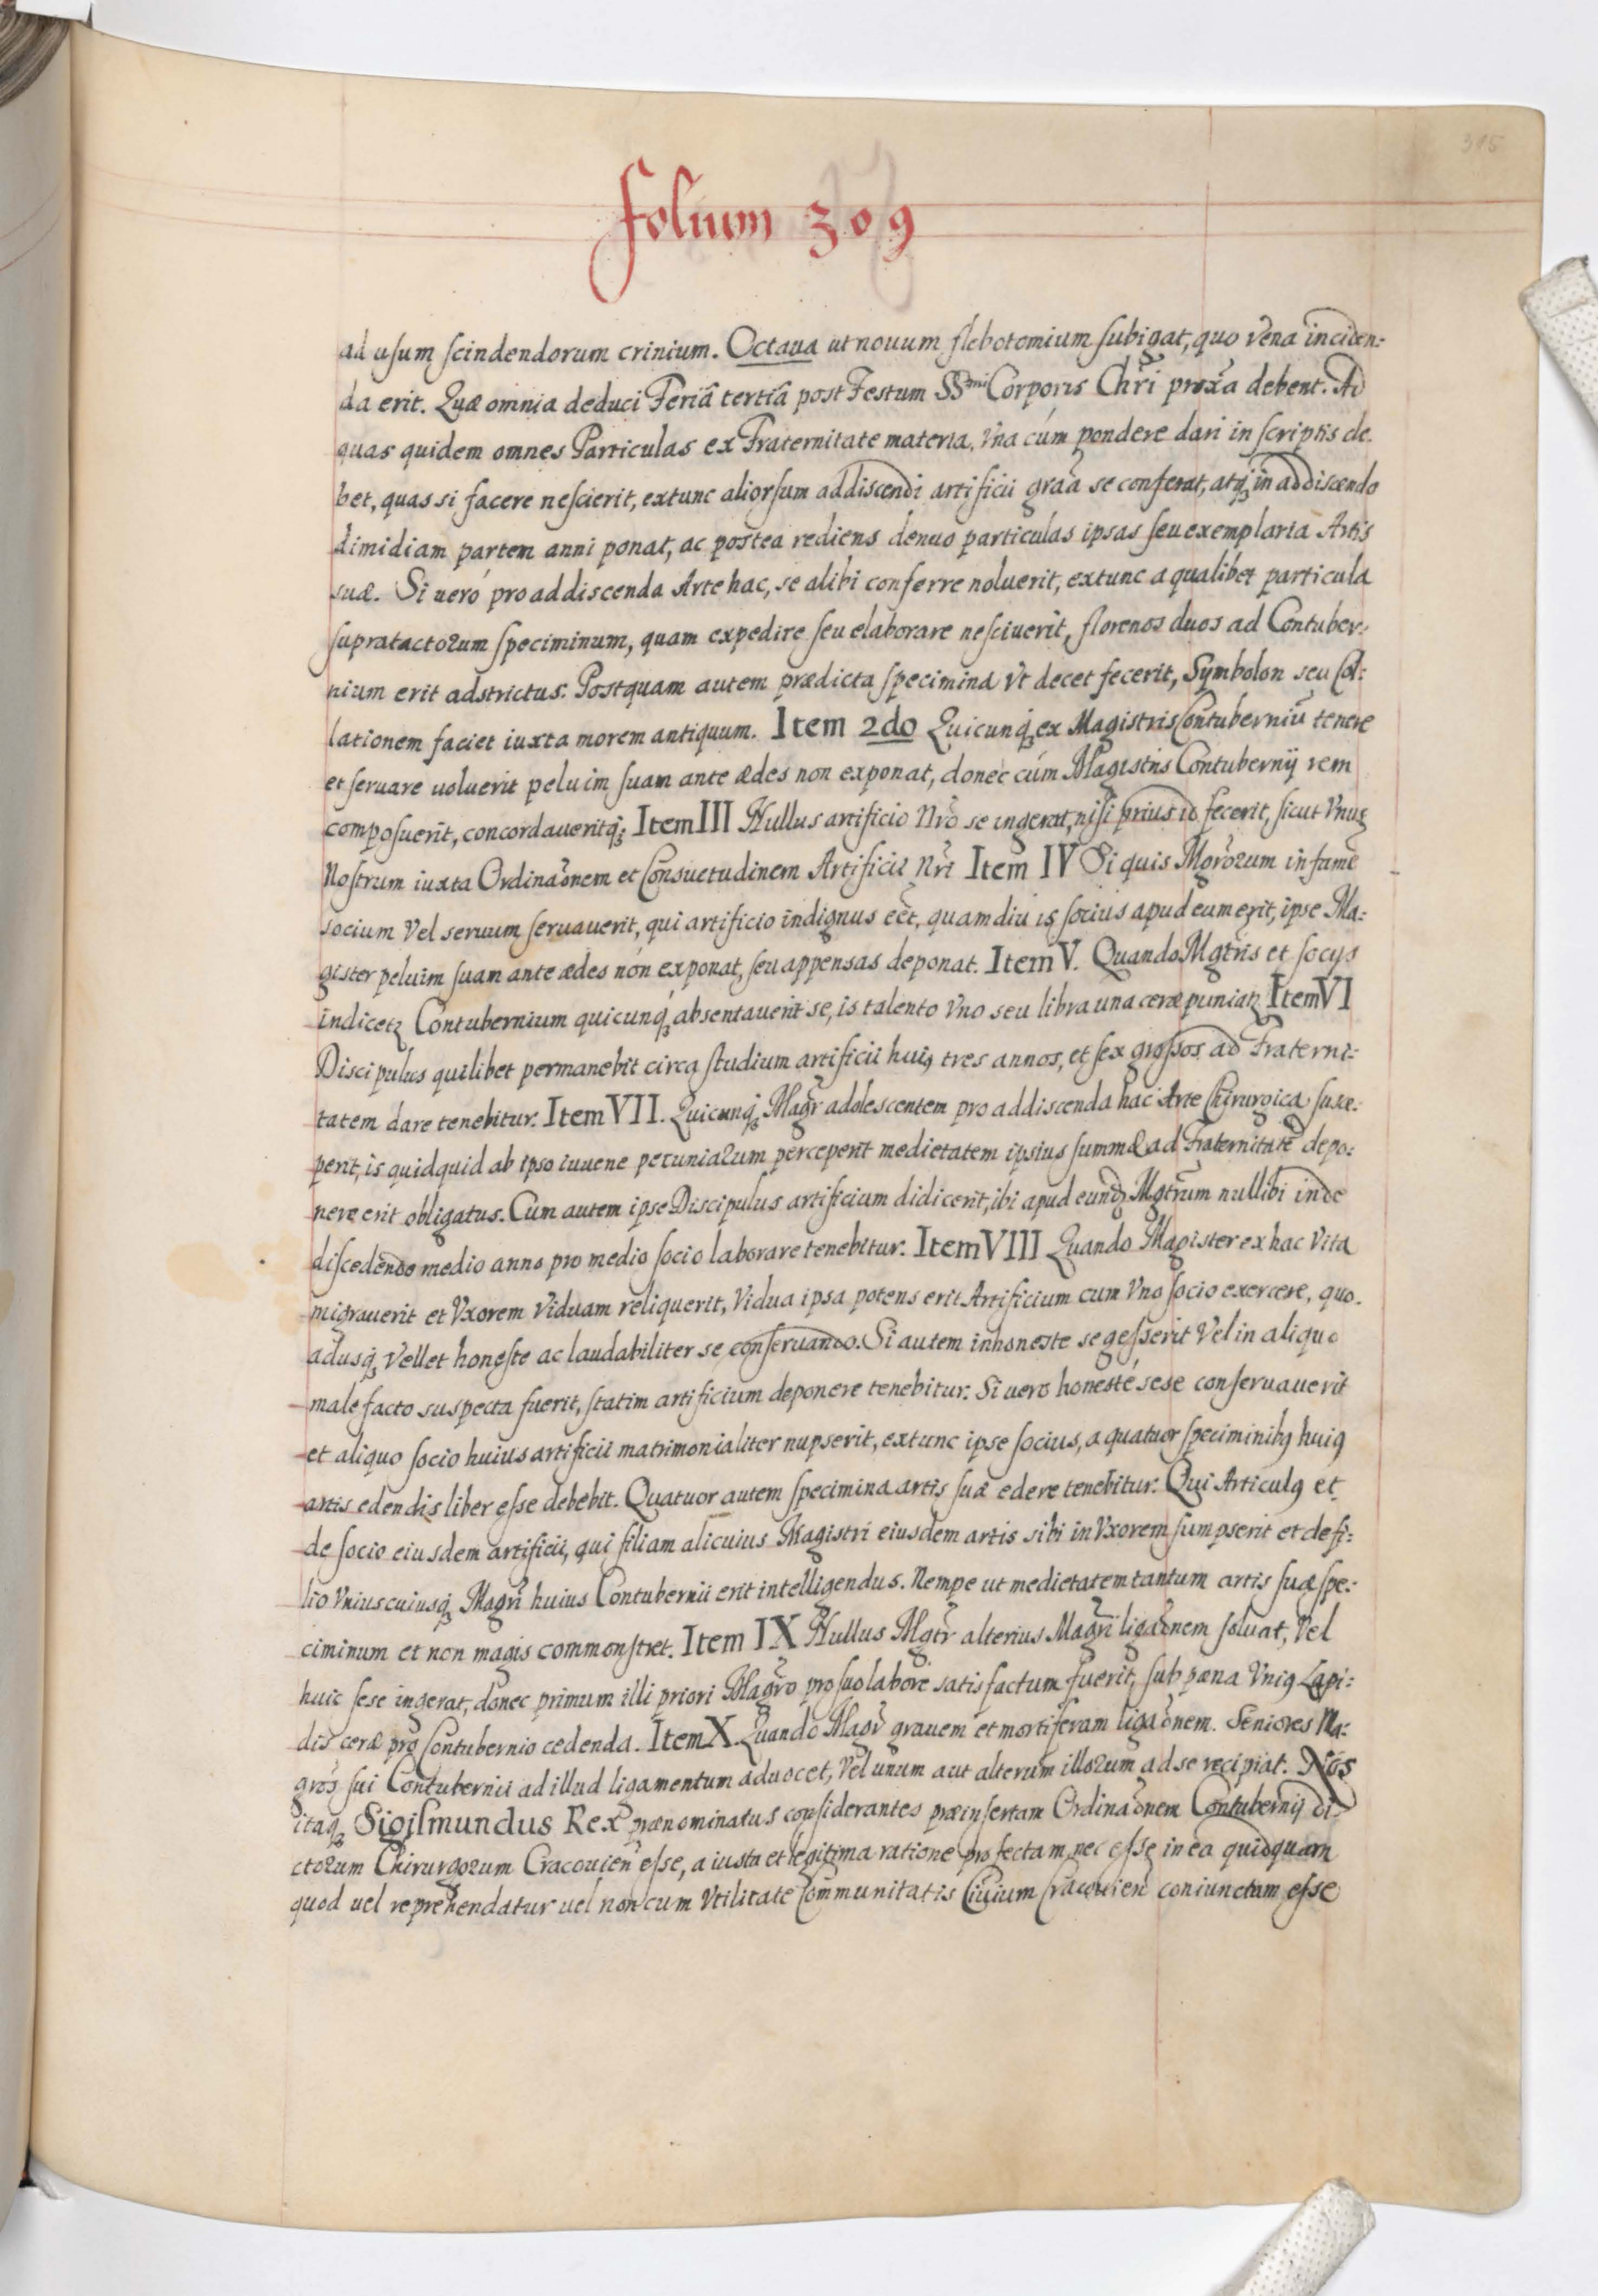 315
folium 309
ad usum scindendorum crinium. Octaua ut nouum flebotomium subigat, quo vena inciden:
da erit. Quæ omnia deduci Feriâ tertiâ post Festum SSmi Corporis Chri̅ proxa̅ debent. Ad
quas quidem omnes Particulas ex Fraternitate materia, Vna cúm pondere dari in scriptis de:
bet, quas si facere nescierit, extunc aliorsum addiscendi artificii graa̅ se conferat, atq₃ in addiscendo
dimidiam partem anni ponat, ac postea rediens denuo particulas ipsas seu exemplaria Artis
suæ. Si ueró pro addiscenda Arte hac, se alibi conferre noluerit, extunc a qualibet particula
supratactorum speciminum, quam expedire seu elaborare nesciuerit, florenos duos ad Contuber:
nium erit adstrictus. Postquam autem prædicta specimina vt decet fecerit, Symbolon seu Col:
lationem faciet iuxta morem antiquum. Item 2do Quicunq₃ ex Magistris Contuberniu̅ tenere
et seruare uoluerit peluim suam ante ædes non exponat, donec cúm Magistris Contubernij rem
composuerit, concordaueritq₃. Item III Nullus artificio Nro̅ se ingerat, nisi prius id fecerit, sicut Vnus
Nostrum iuxta Ordinao̅nem et Consuetudinem Artificii Nri̅ Item IV Si quis Mgro̅rum infame̅
socium Vel seruum seruauerit, qui artificio indignus ee̅t, quamdiu is socius apud eum erit, ipse Ma:
gister peluim suam ante ædes nón exponat, seu appensas deponat. Item V. Quando Mgtris et socys
indicetꝛ Contubernium quicunq₃ absentauerit se, is talento Vno seu libra una ceræ puniatꝛ Item VI
Discipulus quilibet permanebit circa studium artificii huiꝰ tres annos, et sex grossos ad Fraterni:
tatem dare tenebitur. Item VII. Quicunq₃ Magr̅ adolescentem pro addiscenda hac Arte Chirurgica susce:
perit, is quidquid ab ipso iuuene pecuniarum perceperit medietatem ipsius summæ ad Fraternitate̅ depo:
nere erit obligatus. Cum autem ipse Discipulus artificium didicerit, ibi apud eund₃ Mgtru̅m nullibi inde
discedendo medio anno pro medio socio laborare tenebitur. Item VIII Quando Magister ex hac Vita
migrauerit et Vxorem Viduam reliquerit, Vidua ipsa potens erit Artificium cum Vno socio exercere, quo:
adusq₃ Vellet honeste ac laudabiliter se conseruando. Si autem inhoneste se gesserit Vel in aliquo
malefacto suspecta fuerit, statim artificium deponere tenebitur. Si uero honesté sese conseruauerit
et aliquo socio huius artificii matrimonialiter nupserit, extunc ipse socius, a quatuor speciminibꝰ huiꝰ
artis edendis liber esse debebit. Quatuor autem specimina artis suæ edere tenebitur. Qui Articulꝰ et
de socio eiusdem artificii, qui filiam alicuius Magistri eiusdem artis sibi in Vxorem sumpserit et de fi:
lio Vniuscuiusq₃ Magri̅ huius Contubernii erit intelligendus. Nempe ut medietatem tantum artis suæ spe:
ciminum et non magis commonstret. Item IX Nullus Mgtr̅ alterius Magri̅ ligao̅nem soluat, Vel
huic sese ingerat, donec primum illi priori Magro̅ pro suo labore satisfactum fuerit, sub pæna Vniꝰ Lapi:
dis ceræ pro Contubernio cedenda. Item X. Quando Magr̅ grauem et mortiferam ligao̅nem. Seniores Ma:
gros̅ sui Contubernii ad illud ligamentum aduocet, Vel unum aut alterum illorum ad se recipiat. Nos
itaq₃ Sigismundus Rex prænominatus considerantes præinsertam Ordinao̅nem Contubernij di:
ctorum Chirurgorum Cracouien̅ esse, a iusta et legitima ratione profectam, nec esse in ea quidquam
quod uel reprehendatur uel non cum Vtilitate Communitatis Ciuium Cracouien̅ coniunctum esse